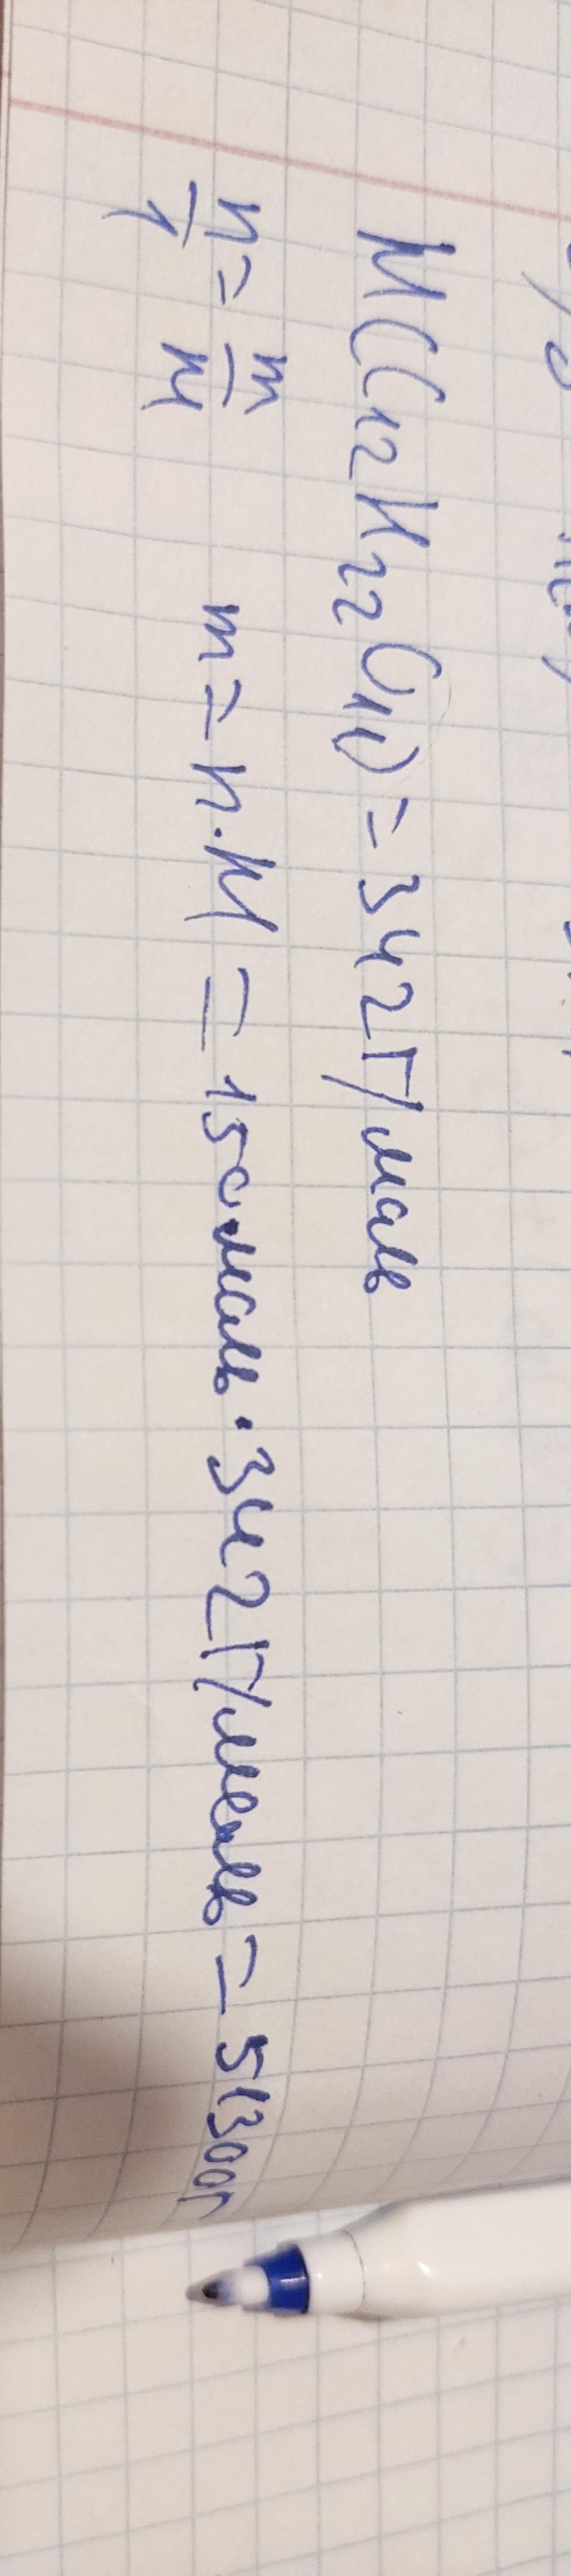 M(C12H22O11) = 342г/моль
n/1 = m/M m = n·M = 150моль · 342г/моль = 51300г